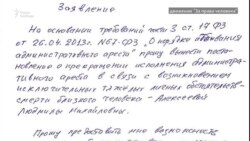 Заявление
На основании требований части 3 ст. 17 ФЗ
от 26.04.2013г. №67-ФЗ „О порядке отбывания
административного ареста" прошу вынести поста-
новление о прекращении исполнения администра-
тивного ареста в связи с возникновением
исключительных тяжёлых личных обстоятельств -
смерти близкого человека - Алексеевой
Людмилы Михайловны.
Прошу предоставить мне возможность